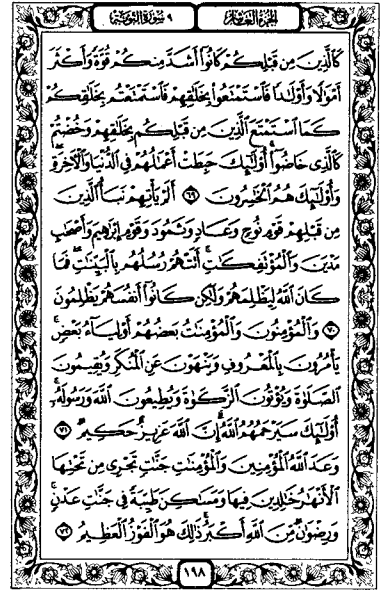 الجزء العاشر
٩ سورة التوبة
كَالَّذِينَ مِن قَبْلِكُمْ كَانُوٓا۟ أَشَدَّ مِنكُمْ قُوَّةً وَأَكْثَرَ
أَمْوَٰلًا وَأَوْلَٰدًا فَٱسْتَمْتَعُوا۟ بِخَلَٰقِهِمْ فَٱسْتَمْتَعْتُم بِخَلَٰقِكُمْ
كَمَا ٱسْتَمْتَعَ ٱلَّذِينَ مِن قَبْلِكُم بِخَلَٰقِهِمْ وَخُضْتُمْ
كَٱلَّذِى خَاضُوٓا۟ ۚ أُو۟لَٰٓئِكَ حَبِطَتْ أَعْمَٰلُهُمْ فِى ٱلدُّنْيَا وَٱلْءَاخِرَةِ ۖ
وَأُو۟لَٰٓئِكَ هُمُ ٱلْخَٰسِرُونَ ٦٩ أَلَمْ يَأْتِهِمْ نَبَأُ ٱلَّذِينَ
مِن قَبْلِهِمْ قَوْمِ نُوحٍ وَعَادٍ وَثَمُودَ وَقَوْمِ إِبْرَٰهِيمَ وَأَصْحَٰبِ
مَدْيَنَ وَٱلْمُؤْتَفِكَٰتِ ۚ أَتَتْهُمْ رُسُلُهُم بِٱلْبَيِّنَٰتِ ۖ فَمَا
كَانَ ٱللَّهُ لِيَظْلِمَهُمْ وَلَٰكِن كَانُوٓا۟ أَنفُسَهُمْ يَظْلِمُونَ
٧٠ وَٱلْمُؤْمِنُونَ وَٱلْمُؤْمِنَٰتُ بَعْضُهُمْ أَوْلِيَآءُ بَعْضٍ ۚ
يَأْمُرُونَ بِٱلْمَعْرُوفِ وَيَنْهَوْنَ عَنِ ٱلْمُنكَرِ وَيُقِيمُونَ
ٱلصَّلَوٰةَ وَيُؤْتُونَ ٱلزَّكَوٰةَ وَيُطِيعُونَ ٱللَّهَ وَرَسُولَهُۥٓ ۚ
أُو۟لَٰٓئِكَ سَيَرْحَمُهُمُ ٱللَّهُ ۗ إِنَّ ٱللَّهَ عَزِيزٌ حَكِيمٌ ٧١
وَعَدَ ٱللَّهُ ٱلْمُؤْمِنِينَ وَٱلْمُؤْمِنَٰتِ جَنَّٰتٍ تَجْرِى مِن تَحْتِهَا
ٱلْأَنْهَٰرُ خَٰلِدِينَ فِيهَا وَمَسَٰكِنَ طَيِّبَةً فِى جَنَّٰتِ عَدْنٍ ۚ
وَرِضْوَٰنٌ مِّنَ ٱللَّهِ أَكْبَرُ ۚ ذَٰلِكَ هُوَ ٱلْفَوْزُ ٱلْعَظِيمُ ٧٢
١٩٨